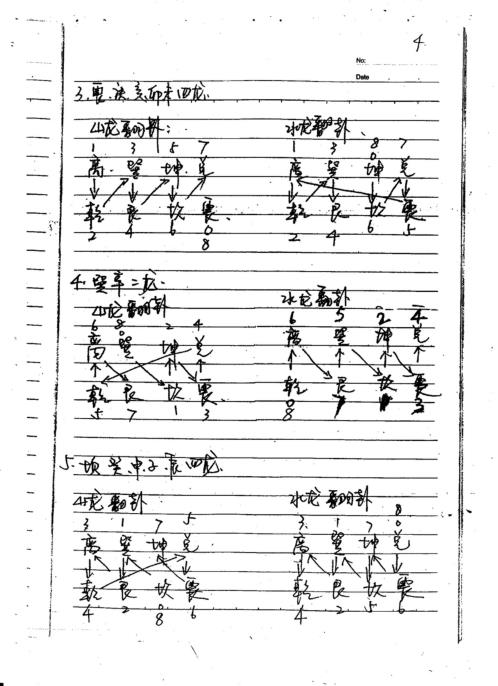 4
No:
Date
3.震.庚亥卯未四龙
山龙翻卦: 水龙翻卦
1 3 5 7 1 3 8 7
离 巽 坤 兑 离 巽 坤 兑
乾 艮 坎 震 乾 艮 坎 震
2 4 6 8 2 4 6 5
4.巽辛二龙
山龙翻卦 水龙翻卦
6 8 2 4 6 5 2 4
离 巽 坤 兑 离 巽 坤 兑
乾 艮 坎 震 乾 艮 坎 震
5 7 1 3 8 7 1 3
5.坎癸.申子.辰四龙
山龙翻卦 水龙翻卦
3 1 7 5 3 1 7 8
离 巽 坤 兑 离 巽 坤 兑
乾 艮 坎 震 乾 艮 坎 震
4 2 8 6 4 2 5 6